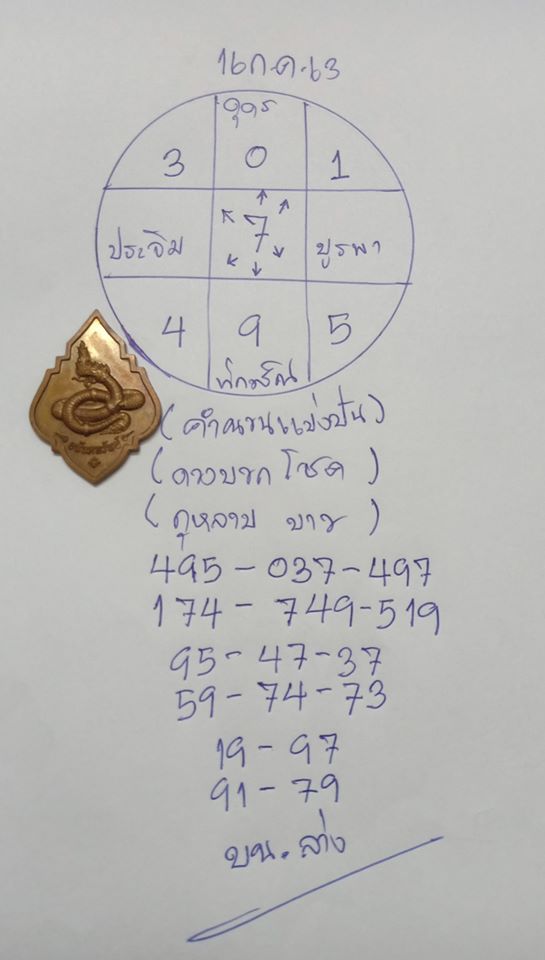 16 ก.ค.63
อุดร
3 0 1
ประจิม 7 บูรพา
4 9 5
ทักษิณ
(คำนวนแบ่งปัน)
(ดวงบอกโชค)
(กุหลาบ บาง)
495-037-497
174-749-519
95-47-37
59-74-73
19-97
91-79
บน.ล่าง